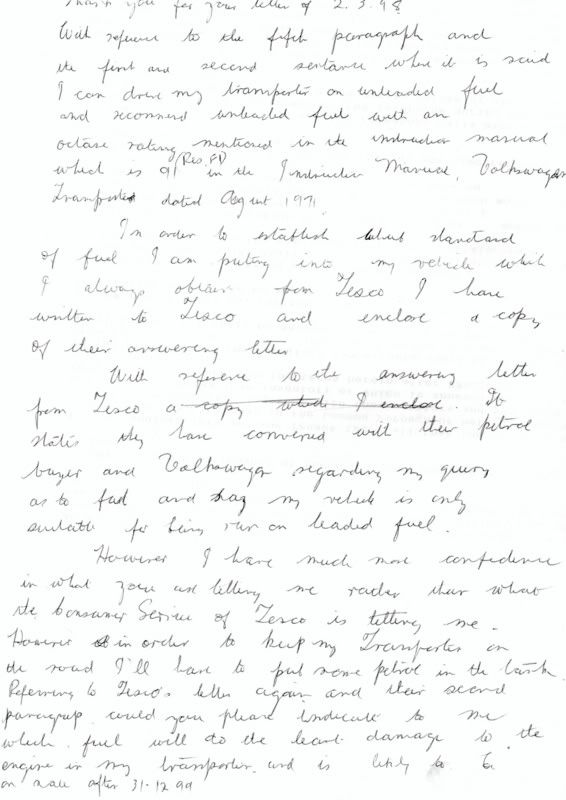 Thank you for your letter of 2.3.98
With reference to the fifth paragraph and
the first and second sentance where it is said
I can drive my transporter on unleaded fuel
and recommend unleaded fuel with an
octane rating mentioned in the instruction manual
which is 91 (Res. F1) in the Instruction Manual, Volkswagen
Transporter dated August 1971
In order to establish what standard
of fuel I am puting into my vehicle which
I always obtain from Tesco I have
written to Tesco and enclose a copy
of their answering letter
With reference to the answering letter
from Tesco a copy which I enclose. It
states they have conversed with their petrol
buyer and Volkswagen regarding my query
as to fuel and say my vehicle is only
suitable for being run on leaded fuel.
However I have much more confidence
in what your are telling me rather than what
the Consumer Service of Tesco is telling me.
However in order to keep my Transporter on
the road I'll have to put some petrol in the tank.
Referring to Tesco's letter again and their second
paragraph. could you please indicate to me
which fuel will do the least damage to the
engine in my transporter. and is likely to be
on sale after 31-12-99